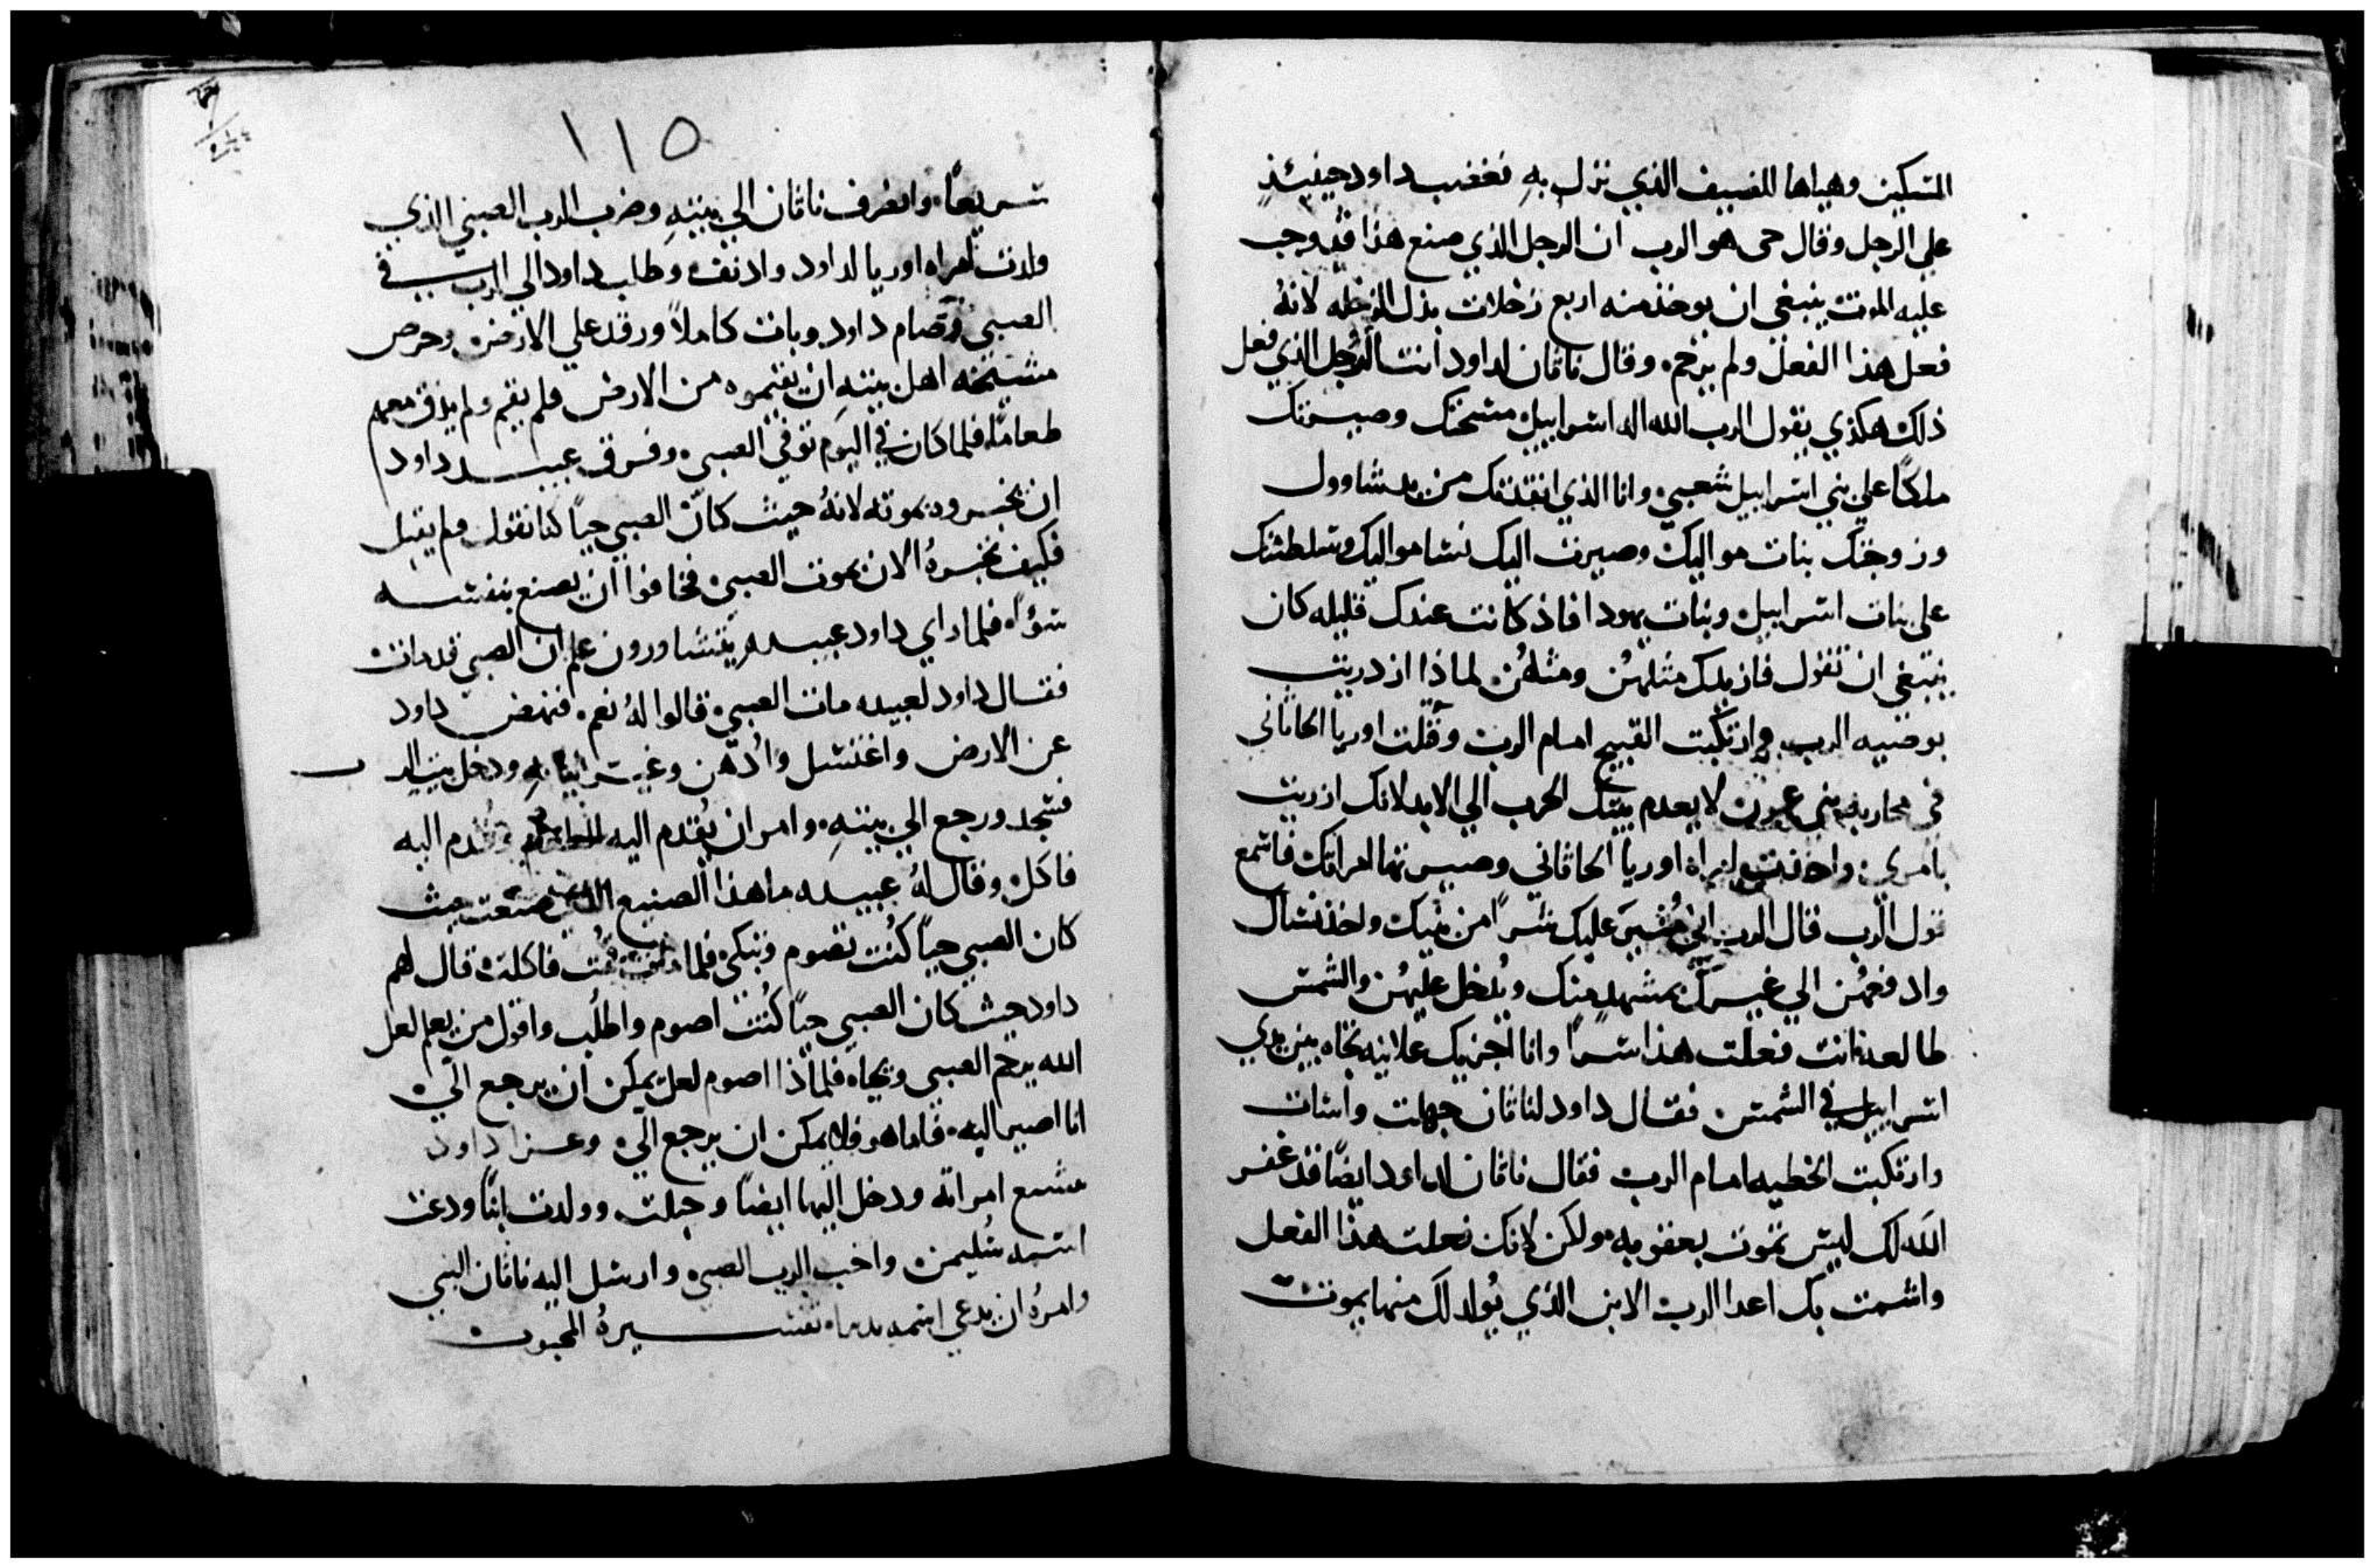 المسكين وهياها للضيف الذي نزل به فغضب داود حينيذٍ
على الرجل وقال حي هو الرب ان الرجل الذي صنع هذا قد وجب
عليه الموت ينبغي ان يوخذ منه اربع رخلات بدل الرخله لانهُ
فعل هذا الفعل ولم يرحم. وقال ناثان لداود انت الرجل الذي فعل
ذلك هكذي يقول الرب الله اله اسراييل مسحتك وصيرتك
ملكًا علي بني اسراييل شعبي وانا الذي انقذتك من يد شاوول
وزوجتك بنات مواليك وصيرت اليك نسا مواليك وسلطتك
على بنات اسراييل وبنات يهودا فاذ كانت عندك قليله كان
ينبغي ان تقول فازيدك مثلهن ومثلهن لماذا ازدريت
بوصيه الرب وارتكبت القبيح امام الرب وقتلت اوريا الحاثاني
في محاربه بني عمون لا يعدم بيتك الحرب الي الابد لانك ازريت
بامري واخذت امراه اوريا الحاثاني وصيرتها امراتك فاسمع
قول الرب قال الرب اني مُثير عليك شرًا من بيتك واخذ نساك
وادفعهُن الي غيرك بمشهدٍ منك ويدخل عليهُن والشمس
طالعه انت فعلت هذا سرًا وانا اجزيك علانيه تجاه بين يدي
اسراييل في الشمس فقال داود لناثان جهلت واسات
وارتكبت الخطيه امام الرب فقال ناثان لداود ايضًا قد غفر
الله لك ليس تموت بعقوبه ولكن لانك فعلت هذا الفعل
واشمت بك اعدا الرب الابن الذي يُولد لك منها يموت
١١٥
سريعًا. وانصرف ناثان الي بيتهِ وضرب الرب الصبي الذي
ولدت امراه اوريا لداود وادنف وطلب داود الي الرب في
الصبي وصام داود وبات كاملاً ورقد علي الارض وحرص
مشيخه اهل بيتهِ ان يقيموه من الارض فلم يقم ولم يذق معهم
طعامًا. فلما كان في اليوم توفي الصبي وفرق عبيد داود
ان يخبروه بموته لانهُ حيث كان الصبي حيًا كنا نقول ولم يقبل
فكيف نخبرهُ الان بموت الصبي فخافوا ان يصنع بنفسه
سوًا. فلما راي داود عبيده يتشاورون علم ان الصبي قد مات
فقال داود لعبيده مات الصبي قالوا لهُ نعم فنهض داود
عن الارض واغتسل وادهن وغير ثيابه ودخل بيت الرب
فسجد ورجع الي بيتهِ. وامر ان يُقدم اليه الطعام وقُدم اليه
فاكل وقال لهُ عبيده ما هذا الصنيع الذي صنعت حيث
كان الصبي حيًا كُنت تصوم وتبكي فلما مات قُمت فاكلت قال لهم
داود حيث كان الصبي حيًا كُنت اصوم واطلُب واقول من يعلم لعل
الله يرحم الصبي ويحياه فلماذا اصوم لعل يمكن ان يرجع اليّ
انا اصير اليه. فاما هو فلا يمكن ان يرجع اليّ وعزا داود
مشبع امراته ودخل اليها ايضًا وحبلت وولدت ابنًا ودعت
اسمه سُليمن واحب الرب الصبي وارسل اليه ناثان النبي
وامرهُ ان يدعي اسمه تفسيرهُ المحبوب